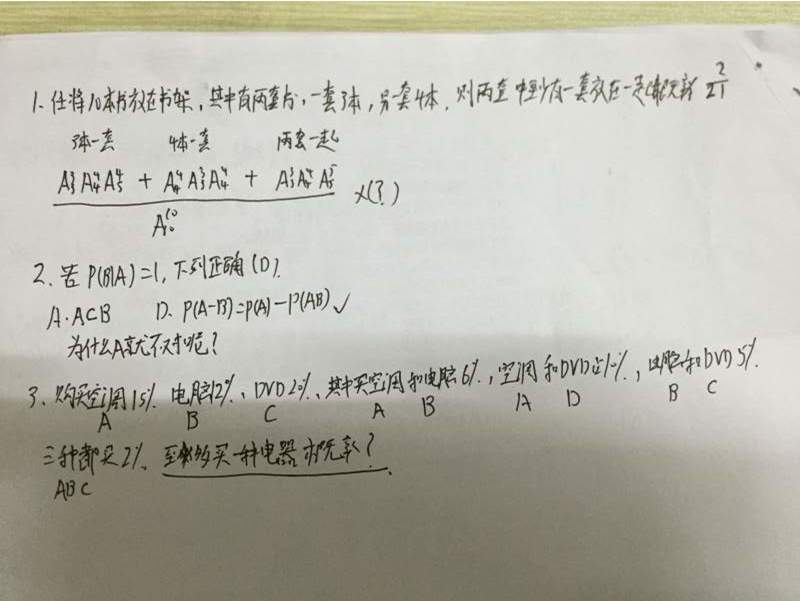 1. 任将10本书放在书架，其中有两套书，一套3本，另一套4本，则两套中至少有一套放在一起的概率 2/21
3本一套 4本一套 两套一起
(A_3^3 A_4^4 A_5^5 + A_4^4 A_3^3 A_4^4 + A_3^3 A_4^4 A_5^5) / A_10^10 ×(?)
2. 若 P(B|A)=1，下列正确 (D).
A. A⊂B D. P(A-B)=P(A)-P(AB) ✓
为什么A就不对呢？
3. 购买空调15%. 电脑12%、DVD 20%、其中买空调和电脑6%，空调和DVD 10%，电脑和DVD 5%.
A B C A B A D B C
三种都买2%、至少购买一种电器的概率？
ABC